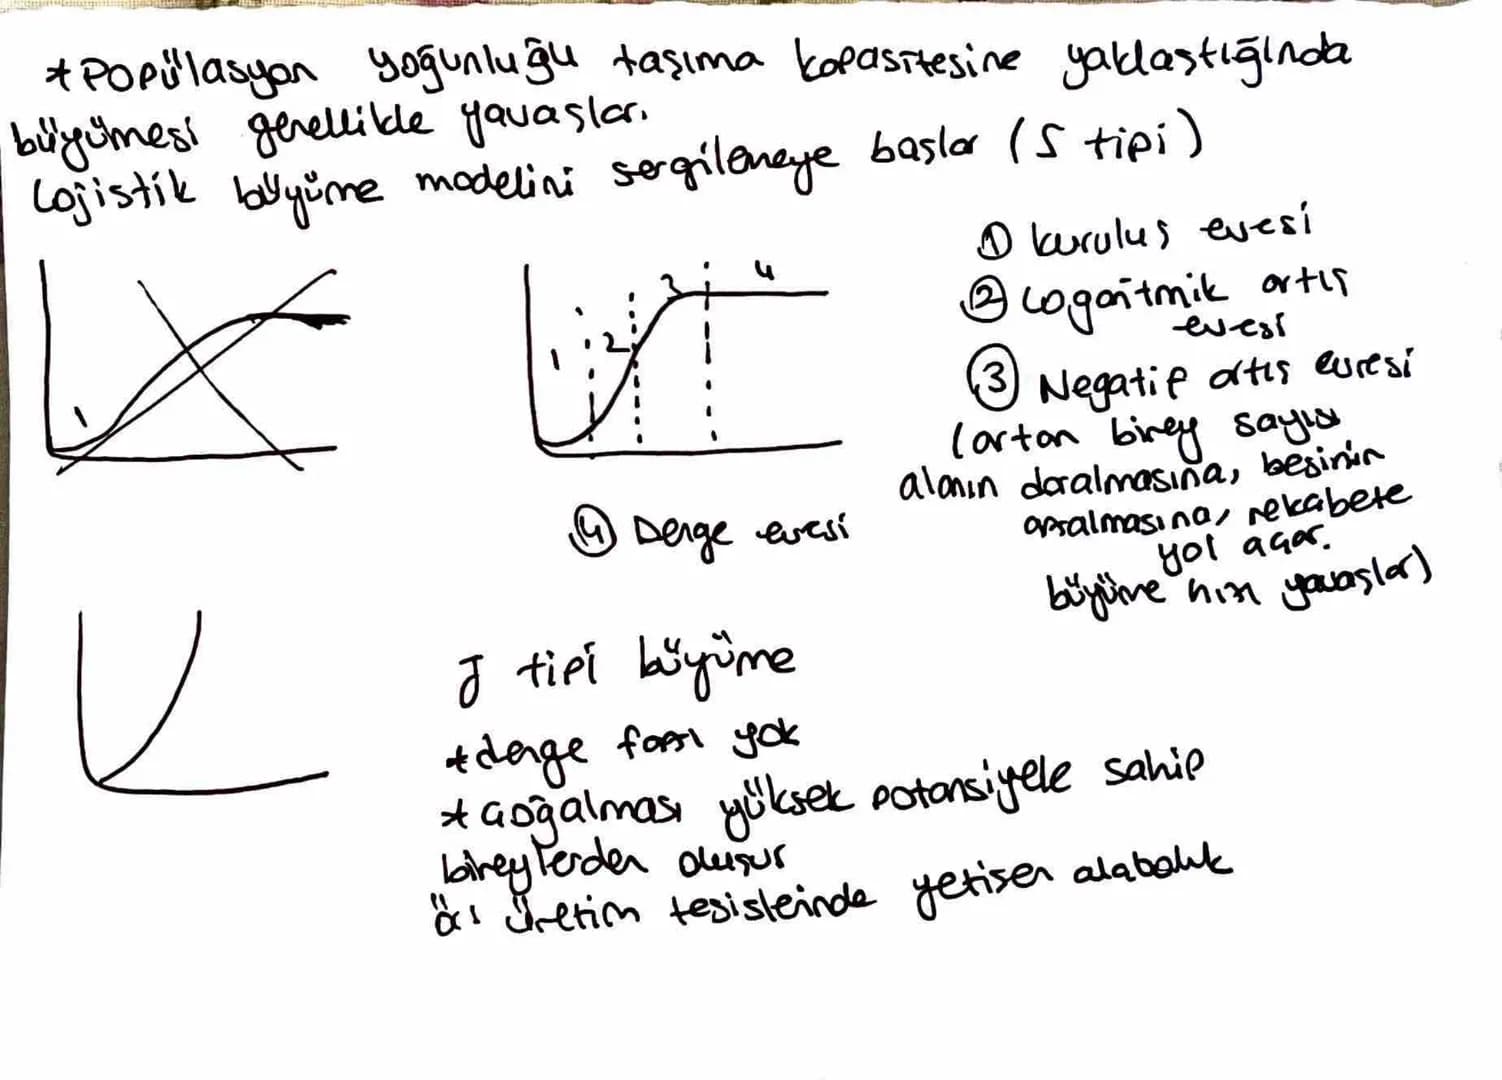 * Popülasyon yoğunluğu taşıma kapasitesine yaklaştığında
büyümesi genellikle yavaşlar.
Lojistik büyüme modelini sergilemeye başlar (S tipi)
1
1
2
3
4
① kuruluş evresi
② Logaritmik artış
evresi
③ Negatif artış evresi
(artan birey sayısı
alanın daralmasına, besinin
azalmasına, rekabete
yol açar.
büyüme hızı yavaşlar)
④ Denge evresi
J tipi büyüme
* denge fazı yok
* çoğalması yüksek potansiyele sahip
bireylerden oluşur
ör: üretim tesislerinde yetişen alabalık